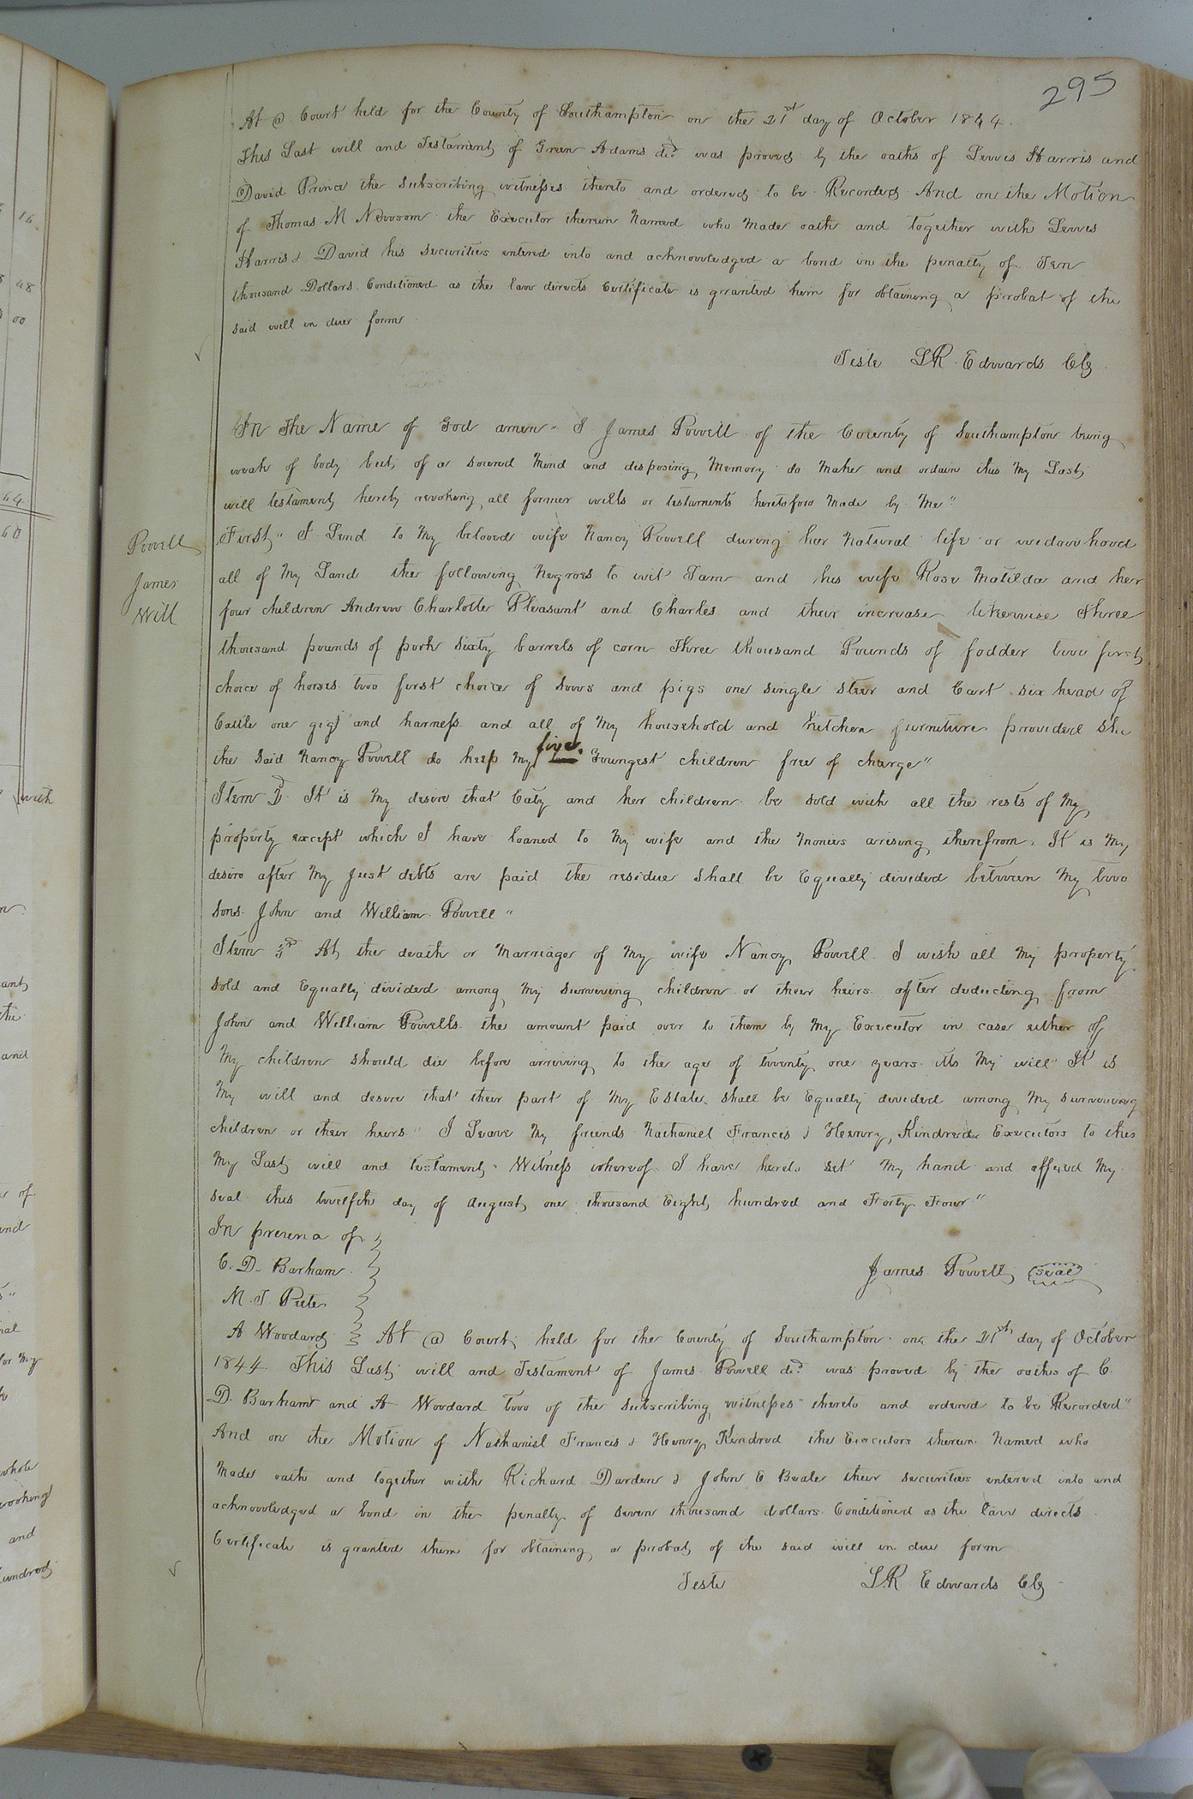 295
At a Court held for the County of Southampton on the 21st day of October 1844.
This Last will and Testament of Green Adams decd was proved by the oaths of Lewis Harris and
David Prince the subscribing witnesses thereto and ordered to be Recorded And on the Motion
of Thomas M Newsom the Executor therein Named who Made oath and together with Lewis
Harris & David his securities entered into and acknowledged a bond in the penalty of Ten
thousand Dollars Conditioned as the law directs Certificate is granted him for obtaining a probat of the
said will in due form
Teste L R Edwards Clk
Powell
James
Will
In The Name of God amen. I James Powell of the County of Southampton being
weak of body but of a sound Mind and disposing Memory do Make and ordain this My Last
will testament hereby revoking all former wills or testaments heretofore Made by Me"
First" I Lend to My beloved wife Nancy Powell during her Natural life or widowhood
all of My Land the following Negroes to wit Sam and his wife Rose Matilda and her
four children Andrew Charlotte Pleasant and Charles and their increase likewise Three
thousand pounds of pork sixty barrels of corn Three thousand Pounds of fodder two first
choice of horses two first choice of sows and pigs one single steer and Cart six head of
Cattle one gig and harness and all of My household and kitchen furniture provided she
the said Nancy Powell do keep My five Youngest children free of charge"
Item 2d It is My desire that Caty and her children be sold with all the rests of My
property except which I have loaned to My wife and the Monies arising therefrom. It is My
desire after My Just debts are paid the residue shall be Equally divided between My two
sons John and William Powell"
Item 3rd At the death or Marriage of My wife Nancy Powell I wish all My property
sold and Equally divided among My surviving children or their heirs after deducting from
John and William Powells the amount paid over to them by My Executor in case either of
My children should die before arriving to the age of twenty one years its My will It is
My will and desire that their part of My Estate shall be Equally divided among My surviving
children or their heirs" I Leave My friends Nathaniel Francis & Henry Kindred Executors to this
My Last will and testament. Witness whereof I have hereto set My hand and affixed My
seal this twelfth day of August one thousand Eight hundred and Forty Four"
In presence of
C. D. Barham
James Powell seal
M. T. Peete
A Woodard At a Court held for the County of Southampton on the 21st day of October
1844 This Last will and Testament of James Powell decd was proved by the oaths of C.
D. Barham and A Woodard two of the subscribing witnesses thereto and ordered to be Recorded"
And on the Motion of Nathaniel Francis & Henry Kindred the Executors therein Named who
Made oath and together with Richard Darden & John E Beale their securities entered into and
acknowledged a bond in the penalty of seven thousand dollars Conditioned as the law directs
Certificate is granted them for obtaining a probat of the said will in due form
Teste L.R Edwards Clk